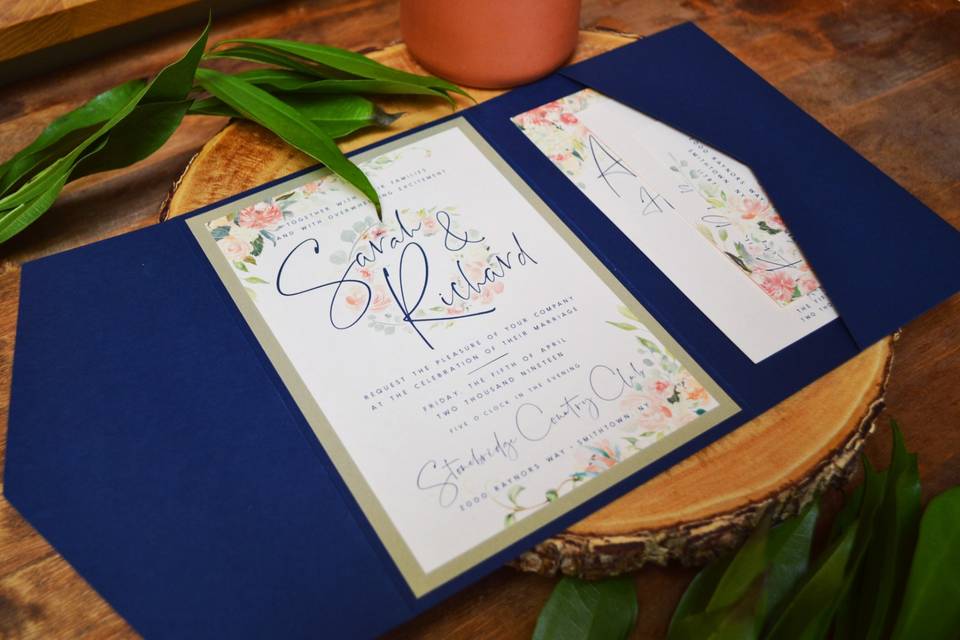 TOGETHER WITH FAMILIES
AND WITH OVERWHELMING EXCITEMENT
Sarah &
Richard
REQUEST THE PLEASURE OF YOUR COMPANY
AT THE CELEBRATION OF THEIR MARRIAGE
FRIDAY, THE FIFTH OF APRIL
TWO THOUSAND NINETEEN
FIVE O'CLOCK IN THE EVENING
Stonebridge Country Club
2000 RAYNORS WAY · SMITHTOWN, NY
A
RAYNORS WAY
SMITHTOWN, NY
THE